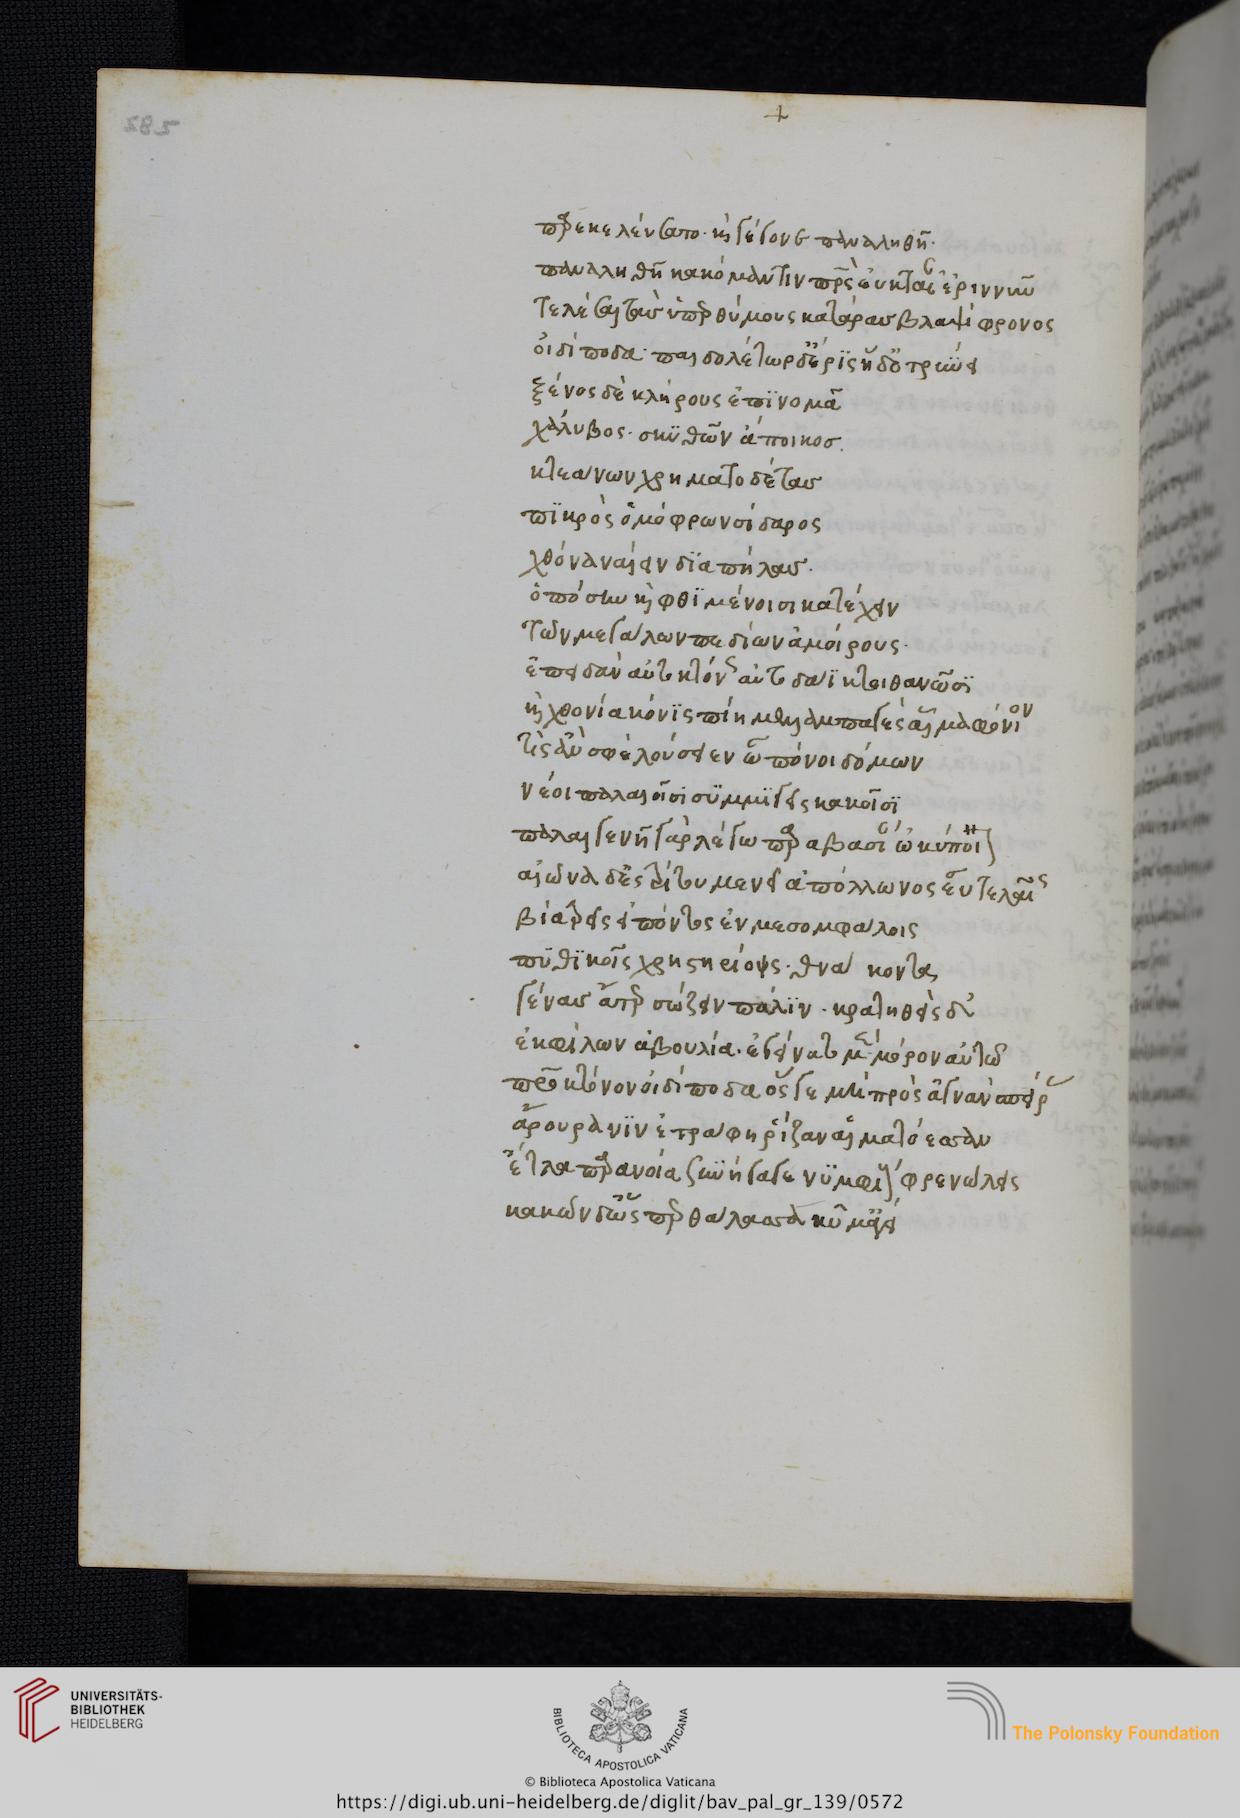 +
παρεκελεύσατο· καὶ γέγονε παναληθῆ·
παναληθῆ κακόμαντιν πατρὸς εὐκταίαν ἐριννῦν
τελέσαι τὰς ὑπερθύμους κατάρας βλαψίφρονος
οἰδιπόδα· παιδολέτωρ δ' ἔρϊς ἥδ' ὀτρύνει
ξένος δὲ κλήρους ἐπϊνομᾶ
χάλυβος· σκϋθῶν ἄποικος.
κτεάνων χρηματοδέτας
πϊκρὸς ὁμόφρων σίδαρος
χθόνα ναίειν δϊαπήλας.
ὁπόσην καὶ φθϊμένοισι κατέχειν
τῶν μεγάλων πεδίων ἀμοίρους·
ἐπειδὰν αὐτοκτόνως αὐτοδάϊκτοι θανῶσϊ
καὶ χθονία κόνϊς πίη μελαμπαγὲς αἷμα φόνιον
τίς ἂν σφε λούσειεν ὦ πόνοι δόμων
νέοι παλαιοῖσϊ σϋμμϊγεῖς κακοῖσϊ
παλαιγενῆ γὰρ λέγω παραβασίαν ὠκύποινον
αἰῶνα δ' ἐς τρίτον μένει ἀπόλλωνος εὖτε λάϊος
βία τρὶς εἰπόντος ἐν μεσομφάλοις
πϋθϊκοῖς χρηστηρίοις· θνάσκοντα
γένας ἄτερ σώζειν πάλϊν· κρατηθεὶς δ'
ἐκ φίλων ἀβουλία· ἐγείνατο μὲν μόρον αὐτῷ
πατροκτόνον οἰδιπόδα ὅς γε μητρὸς ἁγνὰν σπείρας
ἄρουραν ἵν' ἐτράφη ῥίζαν αἱματόεσσαν
ἔτλα παράνοια συνήγαγε νϋμφίους φρενώλεις
κακῶν δ' ὥσπερ θάλασσα κῦμ' ἄγει
282
UNIVERSITÄTS-
BIBLIOTHEK
HEIDELBERG
BIBLIOTECA APOSTOLICA VATICANA
The Polonsky Foundation
© Biblioteca Apostolica Vaticana
https://digi.ub.uni-heidelberg.de/diglit/bav_pal_gr_139/0572